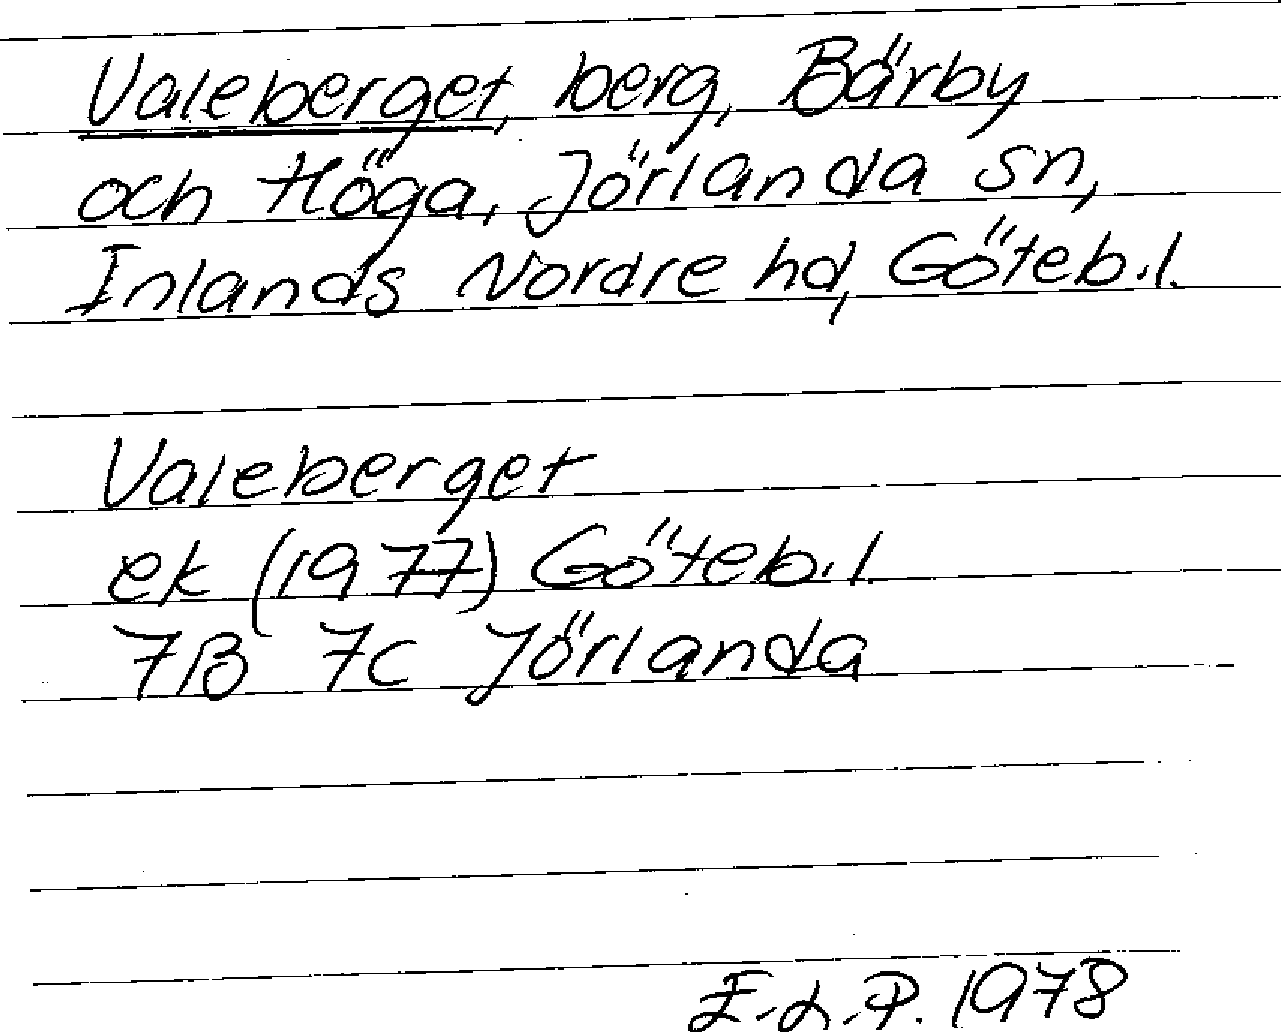 Valeberget, berg, Bärby
och Höga, Jörlanda sn,
Inlands Nordre hd, Göteb.l.
Valeberget
ek (1977) Göteb.l.
7B 7c Jörlanda
E.L.P. 1978